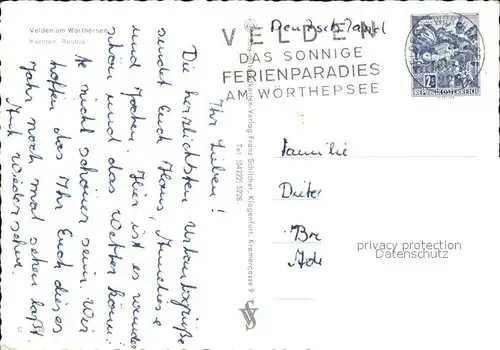 Velden am Wörthersee
Kärnten Austria
Ihr Lieben!
Die herzlichsten Urlaubsgrüße
sendet Euch Hans, Anneliese
und Jochen. Hier ist es wunder
schön und das Wetter könn
te nicht schöner sein. Wir
hoffen das Ihr Euch dieses
Jahr noch mal sehen laßt.
Auf wiedersehn.
Verlag Franz Schilcher, Klagenfurt, Kramergasse 9
Tel. (04222) 5228
Deutschland
VELDEN
DAS SONNIGE
FERIENPARADIES
AM WÖRTHERSEE
REPUBLIK ÖSTERREICH
Familie
Dieter
Bre
Ade
privacy protection
Datenschutz